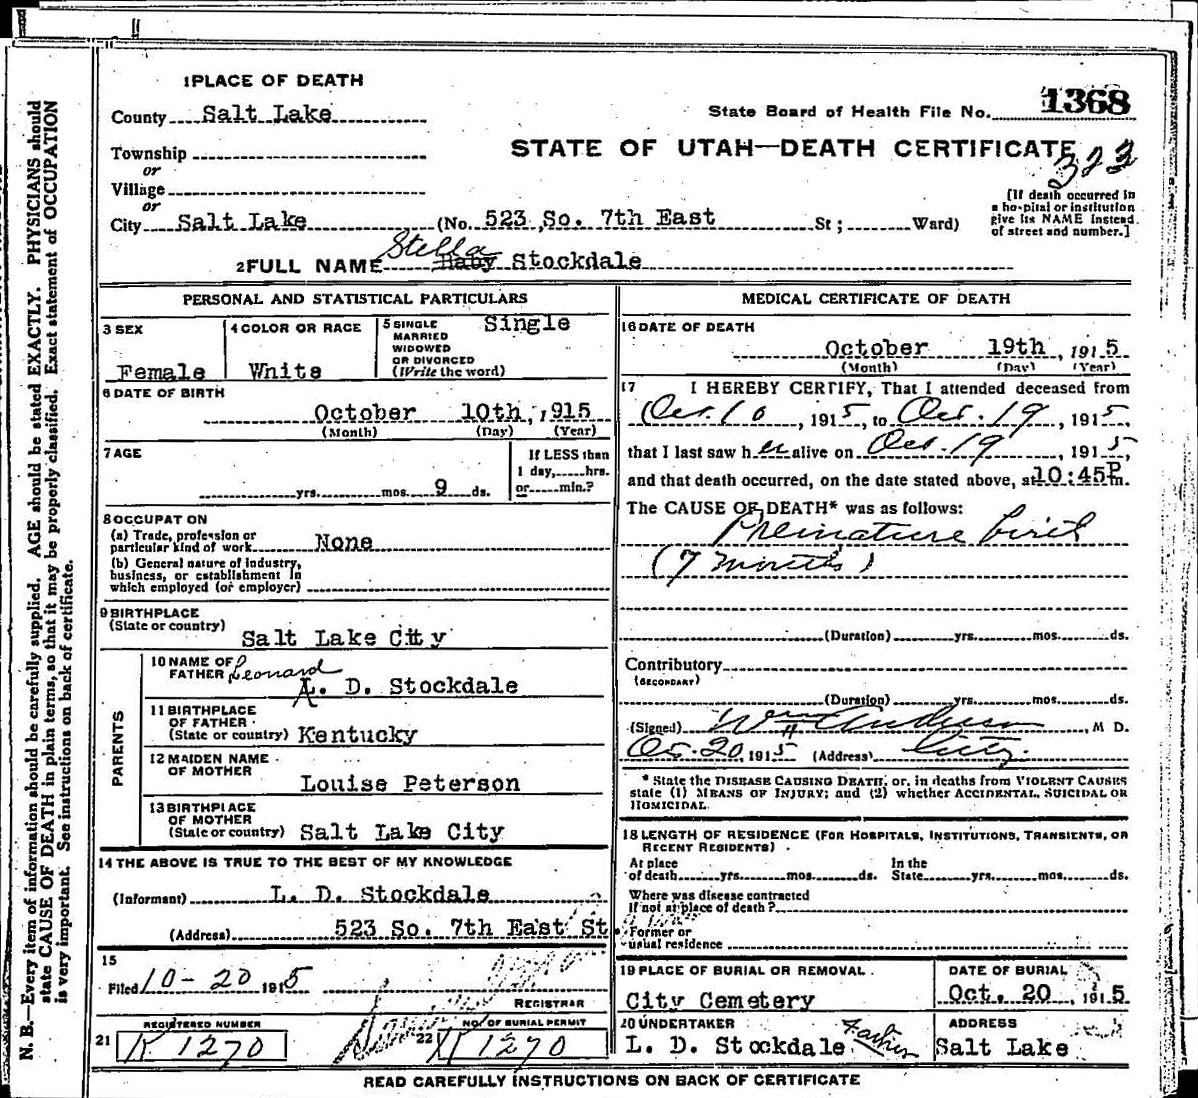 1 PLACE OF DEATH
County Salt Lake
State Board of Health File No. 1368
Township
or
Village
or
STATE OF UTAH—DEATH CERTIFICATE
323
[If death occurred in
a hospital or institution
give its NAME instead
of street and number.]
City Salt Lake (No. 523 So. 7th East St; Ward)
2 FULL NAME Stella Baby Stockdale
PERSONAL AND STATISTICAL PARTICULARS
3 SEX
Female
4 COLOR OR RACE
White
5 SINGLE
MARRIED
WIDOWED
OR DIVORCED
(Write the word)
Single
6 DATE OF BIRTH
October 10th, 1915
(Month) (Day) (Year)
7 AGE
yrs. mos. 9 ds.
If LESS than
1 day, hrs.
or min.?
8 OCCUPATION
(a) Trade, profession or
particular kind of work None
(b) General nature of industry,
business, or establishment in
which employed (or employer)
9 BIRTHPLACE
(State or country)
Salt Lake City
PARENTS
10 NAME OF
FATHER Leonard
L. D. Stockdale
11 BIRTHPLACE
OF FATHER
(State or country) Kentucky
12 MAIDEN NAME
OF MOTHER
Louise Peterson
13 BIRTHPLACE
OF MOTHER
(State or country) Salt Lake City
14 THE ABOVE IS TRUE TO THE BEST OF MY KNOWLEDGE
(Informant) L. D. Stockdale
(Address) 523 So. 7th East St.
15
Filed 10-20 1915
REGISTRAR
21 REGISTERED NUMBER
K 1270
22 NO. OF BURIAL PERMIT
1270
MEDICAL CERTIFICATE OF DEATH
16 DATE OF DEATH
October 19th, 1915
(Month) (Day) (Year)
17 I HEREBY CERTIFY, That I attended deceased from
Oct. 10, 1915, to Oct. 19, 1915,
that I last saw her alive on Oct. 19, 1915,
and that death occurred, on the date stated above, at 10:45 P m.
The CAUSE OF DEATH* was as follows:
Premature birth
(7 months)
(Duration) yrs. mos. ds.
Contributory
(SECONDARY)
(Duration) yrs. mos. ds.
(Signed) Wm H Anderson, M D.
Oct. 20, 1915 (Address) City.
* State the DISEASE CAUSING DEATH, or, in deaths from VIOLENT CAUSES
state (1) MEANS OF INJURY; and (2) whether ACCIDENTAL, SUICIDAL OR
HOMICIDAL.
18 LENGTH OF RESIDENCE (FOR HOSPITALS, INSTITUTIONS, TRANSIENTS, OR
RECENT RESIDENTS)
At place
of death yrs. mos. ds.
In the
State yrs. mos. ds.
Where was disease contracted
If not at place of death?
Former or
usual residence
19 PLACE OF BURIAL OR REMOVAL
City Cemetery
DATE OF BURIAL
Oct. 20, 1915
20 UNDERTAKER
L. D. Stockdale Father
ADDRESS
Salt Lake
READ CAREFULLY INSTRUCTIONS ON BACK OF CERTIFICATE
N. B.—Every item of information should be carefully supplied. AGE should be stated EXACTLY. PHYSICIANS should
state CAUSE OF DEATH in plain terms, so that it may be properly classified. Exact statement of OCCUPATION
is very important. See instructions on back of certificate.